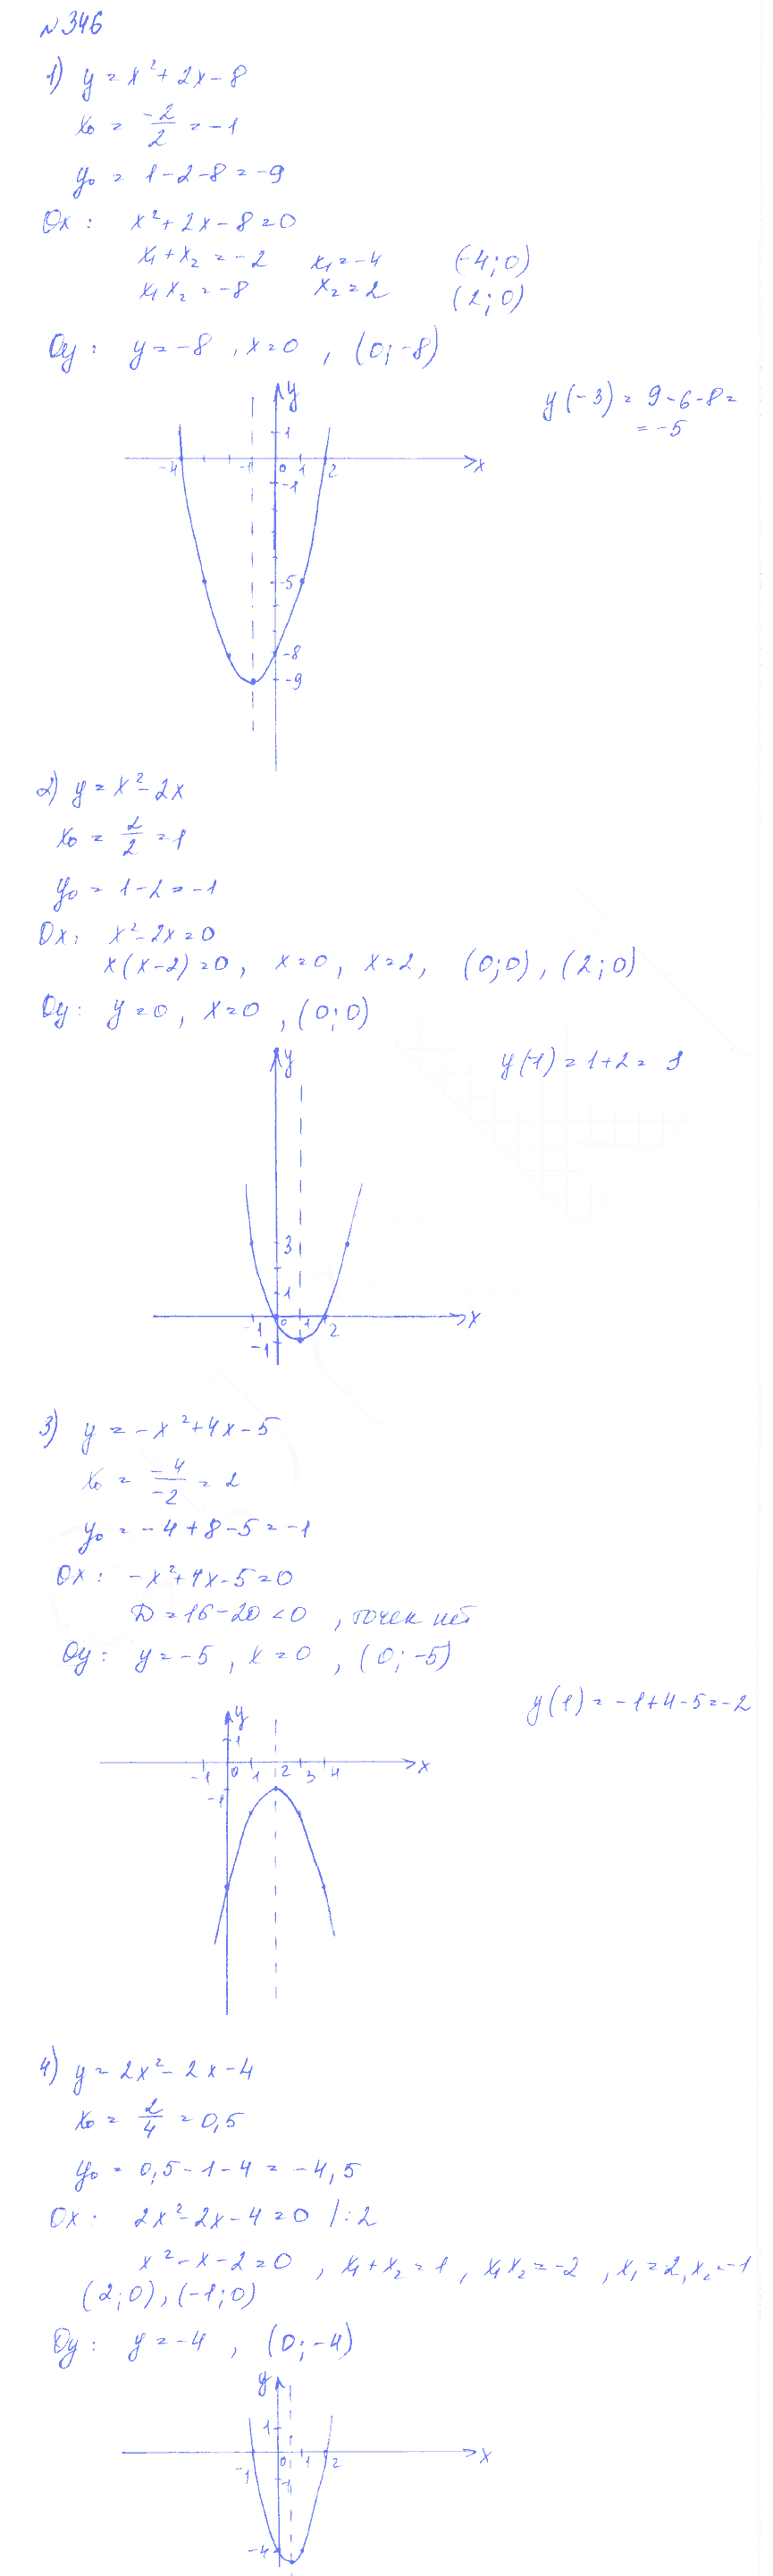 №346
1) y = x² + 2x - 8
x₀ = -2/2 = -1
y₀ = 1 - 2 - 8 = -9
Ox: x² + 2x - 8 = 0
x₁ + x₂ = -2 x₁ = -4 (-4; 0)
x₁x₂ = -8 x₂ = 2 (2; 0)
Oy: y = -8, x = 0, (0; -8)
y(-3) = 9 - 6 - 8 =
= -5
y
1
-4 -1 0 1 2 x
-1
-5
-8
-9
2) y = x² - 2x
x₀ = 2/2 = 1
y₀ = 1 - 2 = -1
Ox: x² - 2x = 0
x(x - 2) = 0, x = 0, x = 2, (0; 0), (2; 0)
Oy: y = 0, x = 0, (0; 0)
y(-1) = 1 + 2 = 3
y
3
1
-1 0 1 2 x
-1
3) y = -x² + 4x - 5
x₀ = -4/-2 = 2
y₀ = -4 + 8 - 5 = -1
Ox: -x² + 4x - 5 = 0
D = 16 - 20 < 0, точек нет
Oy: y = -5, x = 0, (0; -5)
y(1) = -1 + 4 - 5 = -2
y
1
-1 0 1 2 3 4 x
-1
4) y = 2x² - 2x - 4
x₀ = 2/4 = 0,5
y₀ = 0,5 - 1 - 4 = -4,5
Ox: 2x² - 2x - 4 = 0 |:2
x² - x - 2 = 0, x₁ + x₂ = 1, x₁x₂ = -2, x₁ = 2, x₂ = -1
(2; 0), (-1; 0)
Oy: y = -4, (0; -4)
y
1
-1 0 1 2 x
-1
-4